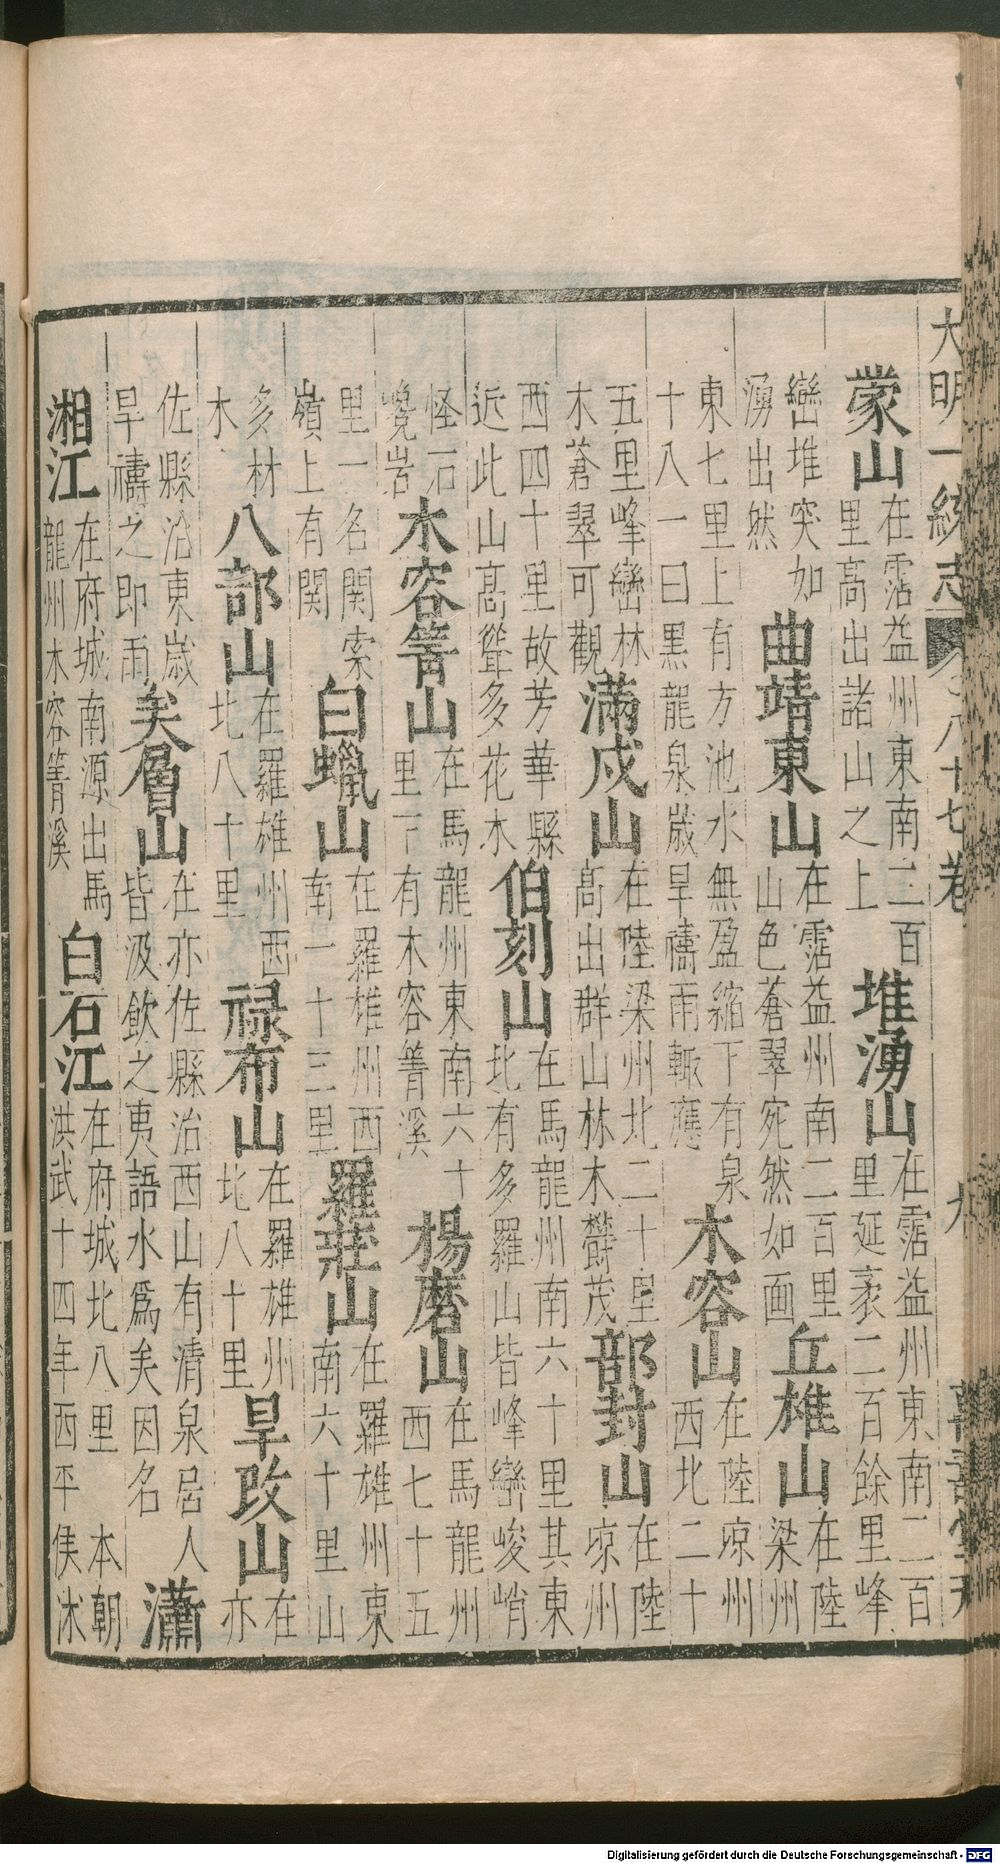 大明一統志 八十七卷 九
蒙山在霑益州東南二百里高出諸山之上堆湧山在霑益州東南二百里延袤二百餘里峰
巒堆突如湧出然曲靖東山在霑益州南二百里山色蒼翠宛然如画丘雄山在陸梁州
東七里上有方池水無盈縮下有泉十八一曰黑龍泉歲旱禱雨輙應木容山在陸凉州西北二十
五里峰巒林木蒼翠可觀滿戍山在陸梁州北二十里高出群山林木欝茂部封山在陸凉州
西四十里故芳華縣近此山高聳多花木伯刻山在馬龍州南六十里其東北有多羅山皆峰巒峻峭
怪石巉岩木容箐山在馬龍州東南六十里下有木容箐溪楊磨山在馬龍州西七十五
里一名関索嶺上有関白蠟山在羅雄州西南一十三里羅莊山在羅雄州東南六十里山
多材木八部山在羅雄州西北八十里禄布山在羅雄州北八十里旱改山在亦
佐縣沿東歲旱禱之即雨矣層山在亦佐縣治西山有清泉居人皆汲飲之夷語水爲矣因名瀟
湘江在府城南源出馬龍州木容箐溪白石江在府城北八里 本朝洪武十四年西平侯沐
Digitalisierung gefördert durch die Deutsche Forschungsgemeinschaft - DFG